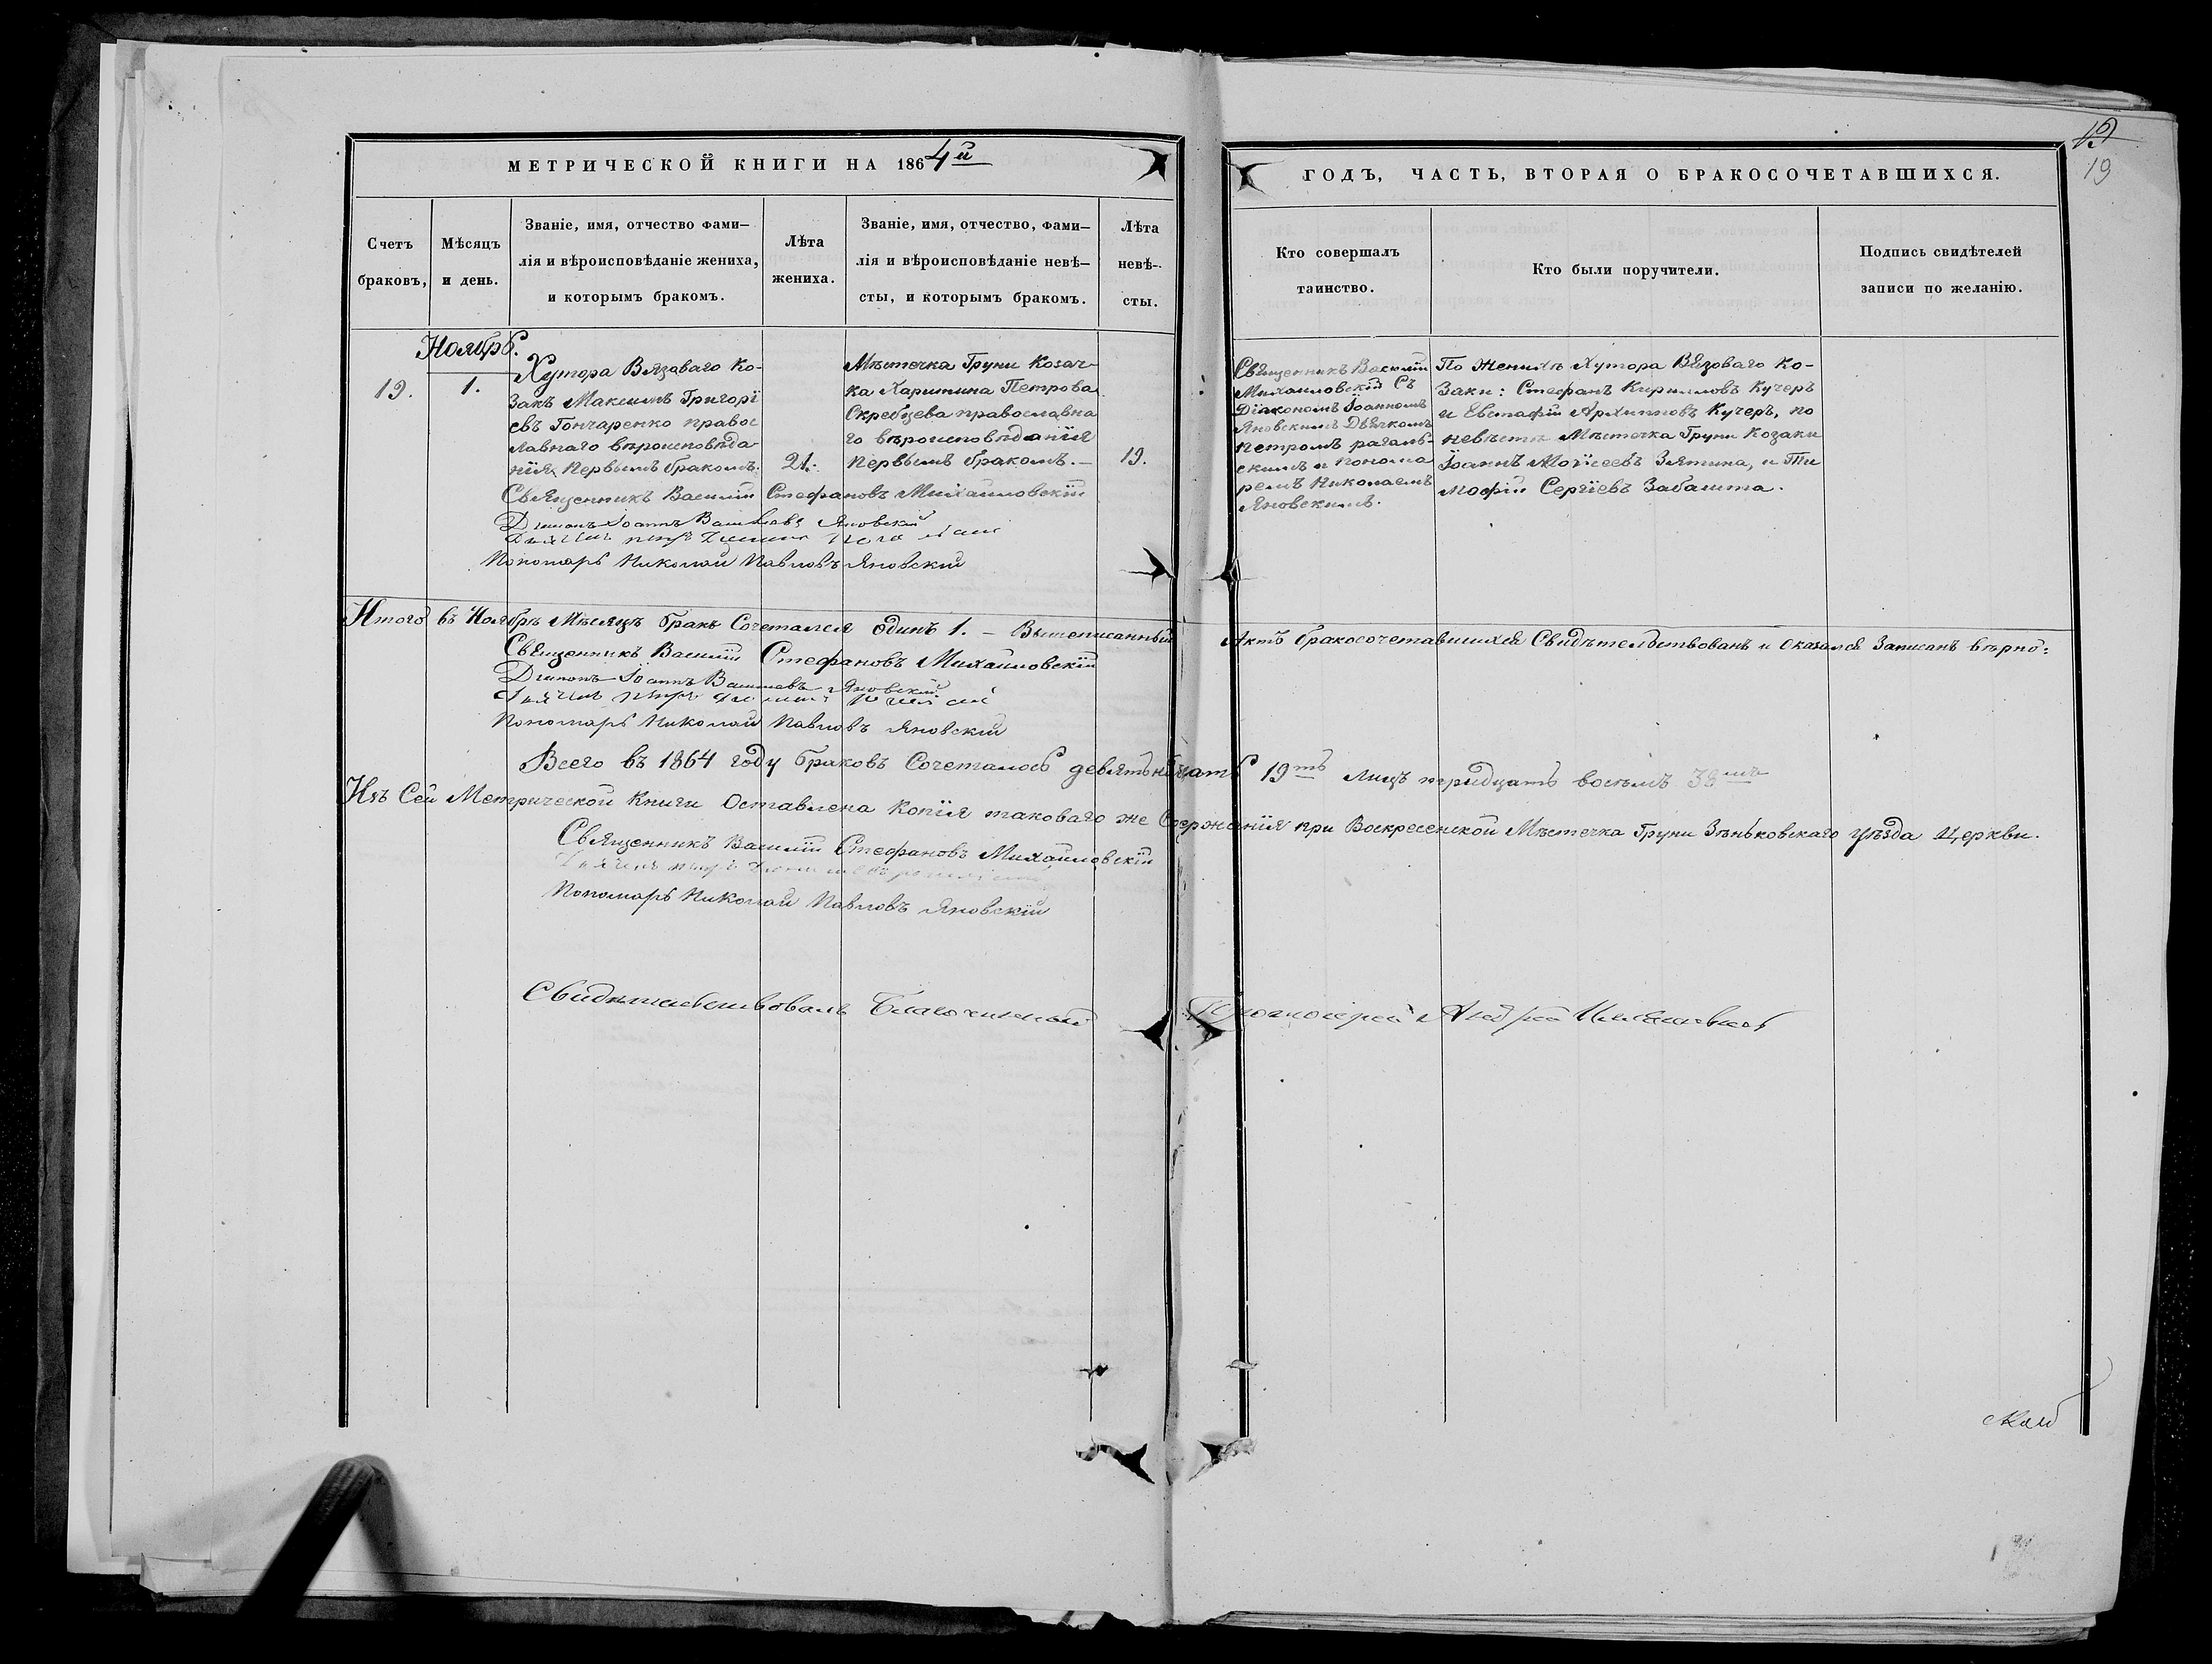 МЕТРИЧЕСКОЙ КНИГИ НА 1864й
ГОДЪ, ЧАСТЬ, ВТОРАЯ О БРАКОСОЧЕТАВШИХСЯ.
19
Счетъ
браковъ,
Мѣсяцъ
и день.
Званіе, имя, отчество фами-
лія и вѣроисповѣданіе жениха,
и которымъ бракомъ.
Лѣта
жениха.
Званіе, имя, отчество, фами-
лія и вѣроисповѣданіе невѣ-
сты, и которымъ бракомъ.
Лѣта
невѣ-
сты.
Кто совершалъ
таинство.
Кто были поручители.
Подпись свидѣтелей
записи по желанію.
Ноябрь.
19.
1.
Хутора Вязоваго Ко-
закъ Максимъ Григорі
евъ Гончаренко правос
лавнаго вѣроисповѣда
нія, первымъ бракомъ.
21.
Мѣстечка Груни Козач-
ка Харитина Петрова
Скребцева православна
го вѣроисповѣданія
первымъ бракомъ.-
19.
Священникъ Василій
Михаиловскій Съ
Діакономъ Іоанномъ
Яновскимъ Дьячкомъ
Петромъ
скимъ и Понома
ремъ Николаемъ
Яновскимъ.
По Женихѣ Хутора Вязоваго Ко-
заки: Стефанъ Кирилловъ Кучеръ
и Евстафій Архиповъ Кучеръ, по
невѣстѣ Мѣстечка Груни Козаки
Іоаннъ Моісеевъ Зятина, и Ти
мофій Сергіевъ Забашта.
Священникъ Василій Стефановъ Михаиловскій
Діаконъ Іоаннъ Васильевъ Яновскій
Пономарь Николай Павловъ Яновскій
Итого въ Ноябрѣ Мѣсяцѣ бракъ Сочетался одинъ 1. - Вышеписанный Актъ бракосочетавшихся Свидѣтельствованъ и оказался Записанъ вѣрно:
Священникъ Василій Стефановъ Михаиловскій
Діаконъ Іоаннъ Васильевъ Яновскій
Пономарь Николай Павловъ Яновскій
Всего въ 1864 году браковъ Сочеталось девятнадцать 19ть лицъ тридцать восемъ 38мъ
Изъ Сей Метрической Книги Оставлена Копія таковаго же Содержанія при Воскресенской Мѣстечка Груни Зѣньковскаго уѣзда Церкви.
Священникъ Василій Стефановъ Михаиловскій
Пономарь Николай Павловъ Яновскій
Свидѣтельствовалъ Благочинный Протоіерей Андрей